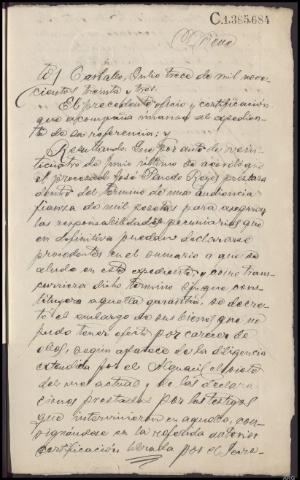 C.1.385.684
to/ Carballo, Julio trece de mil nove-
cientos treinta y tres.
El precedente oficio y certificación
que acompaña únanse al expedien-
te de su referencia; y
Resultando: Que por auto de vein-
ticuatro de junio último se acordó que
el procesado José Pardo Rojo prestara
dentro del término de una audiencia
fianza de mil pesetas para asegurar
las responsabilidades pecuniarias que
en definitiva puedan declararse
procedentes en el sumario a que se
alude en este expediente y como trans-
curriera dicho término sin que cons-
tituyera aquella garantía, se decre-
tó el embargo de sus bienes que no
pudo tener efecto por carecer de
ellos, según aparece de la diligencia
extendida por el Alguacil el siete
del mes actual y de las declara-
ciones prestadas por los testigos
que intervinieron en aquella, con-
signándose en la referida anterior
certificación librada por el Secre-